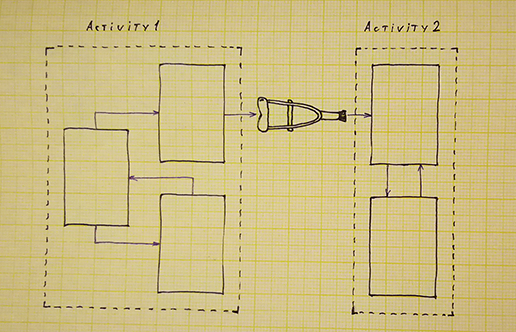 Activity 1
Activity 2